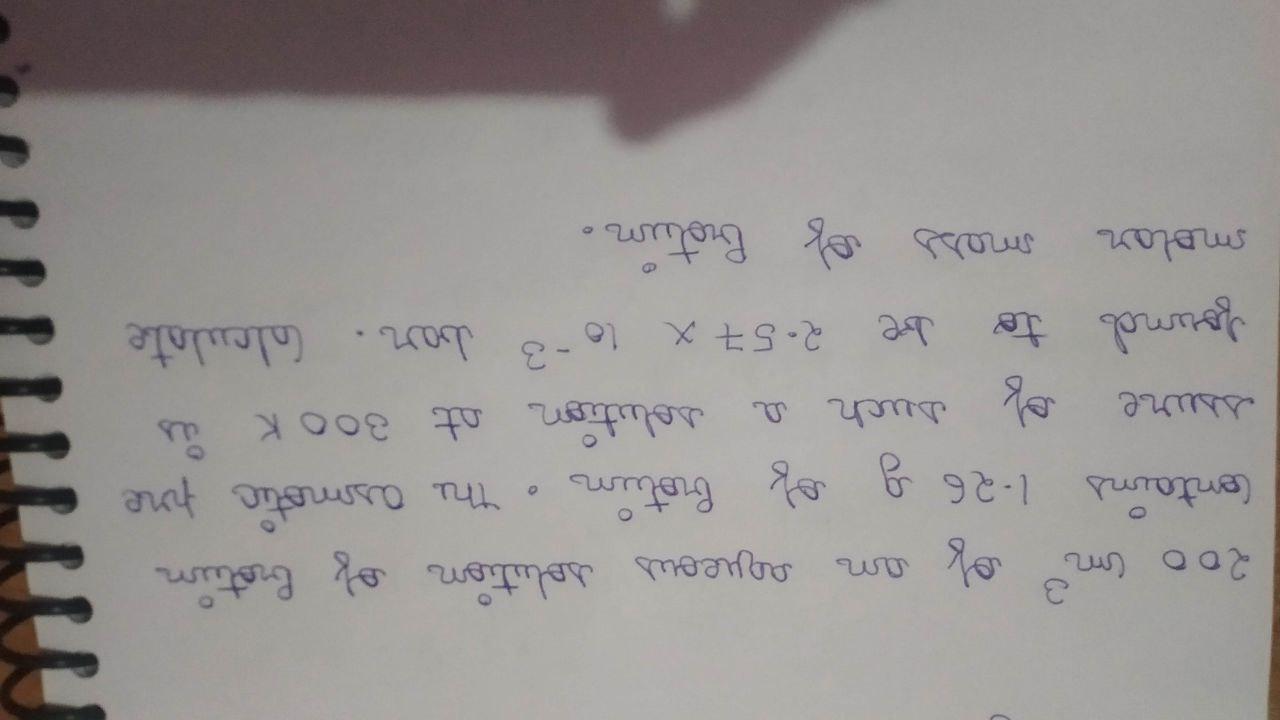 200 cm³ of an aqueous solution of Protein
Contains 1.26 g of Protein. The osmotic pre
ssure of such a solution at 300 K is
found to be 2.57 x 10⁻³ bar. Calculate
molar mass of Protein.